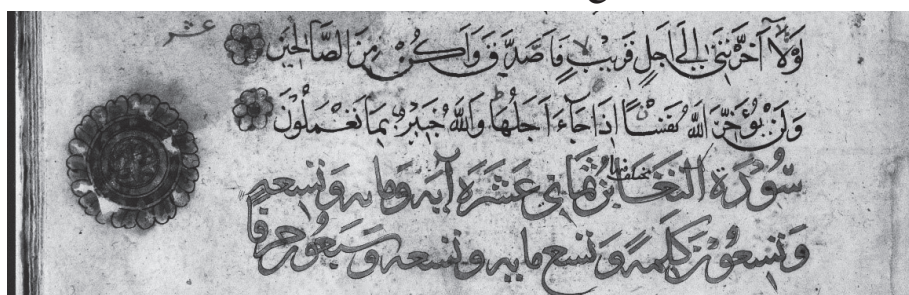 عشر
لَوْلَآ اَخَّرْتَنِىٓ اِلَىٓ اَجَلٍ قَرِيْبٍ فَاَصَّدَّقَ وَاَكُنْ مِنَ الصَّالِحِيْنَ
وَلَنْ يُؤَخِّرَ اللّٰهُ نَفْسًا اِذَا جَآءَ اَجَلُهَا وَاللّٰهُ خَبِيْرٌ بِمَا تَعْمَلُوْنَ
سُوْرَة التغَابُنْ ثَمَانِي عَشَرَة آيَه وَمَايه وَتسعه
وَتسعُوْنْ كَلِمَة وَتسع مايه وتسعه وسَبعُوْنْ حرفًا